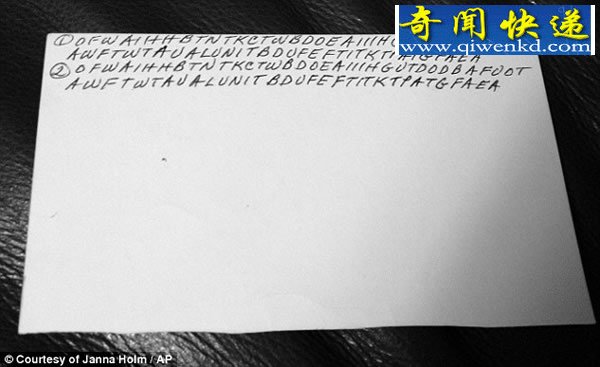 奇闻快递
www.qiwenkd.com
① OFWAIHHBTNTKCTWBDOEAIIIHG
AWFTWTAUALUNITBDUFEFTITKTPATGFAEA
② OFWAIHHBTNTKCTWBDOEAIIIHGUTDODBAFUOT
AWFTWTAUALUNITBDUFEFTITKTPATGFAEA
© Courtesy of Janna Holm / AP